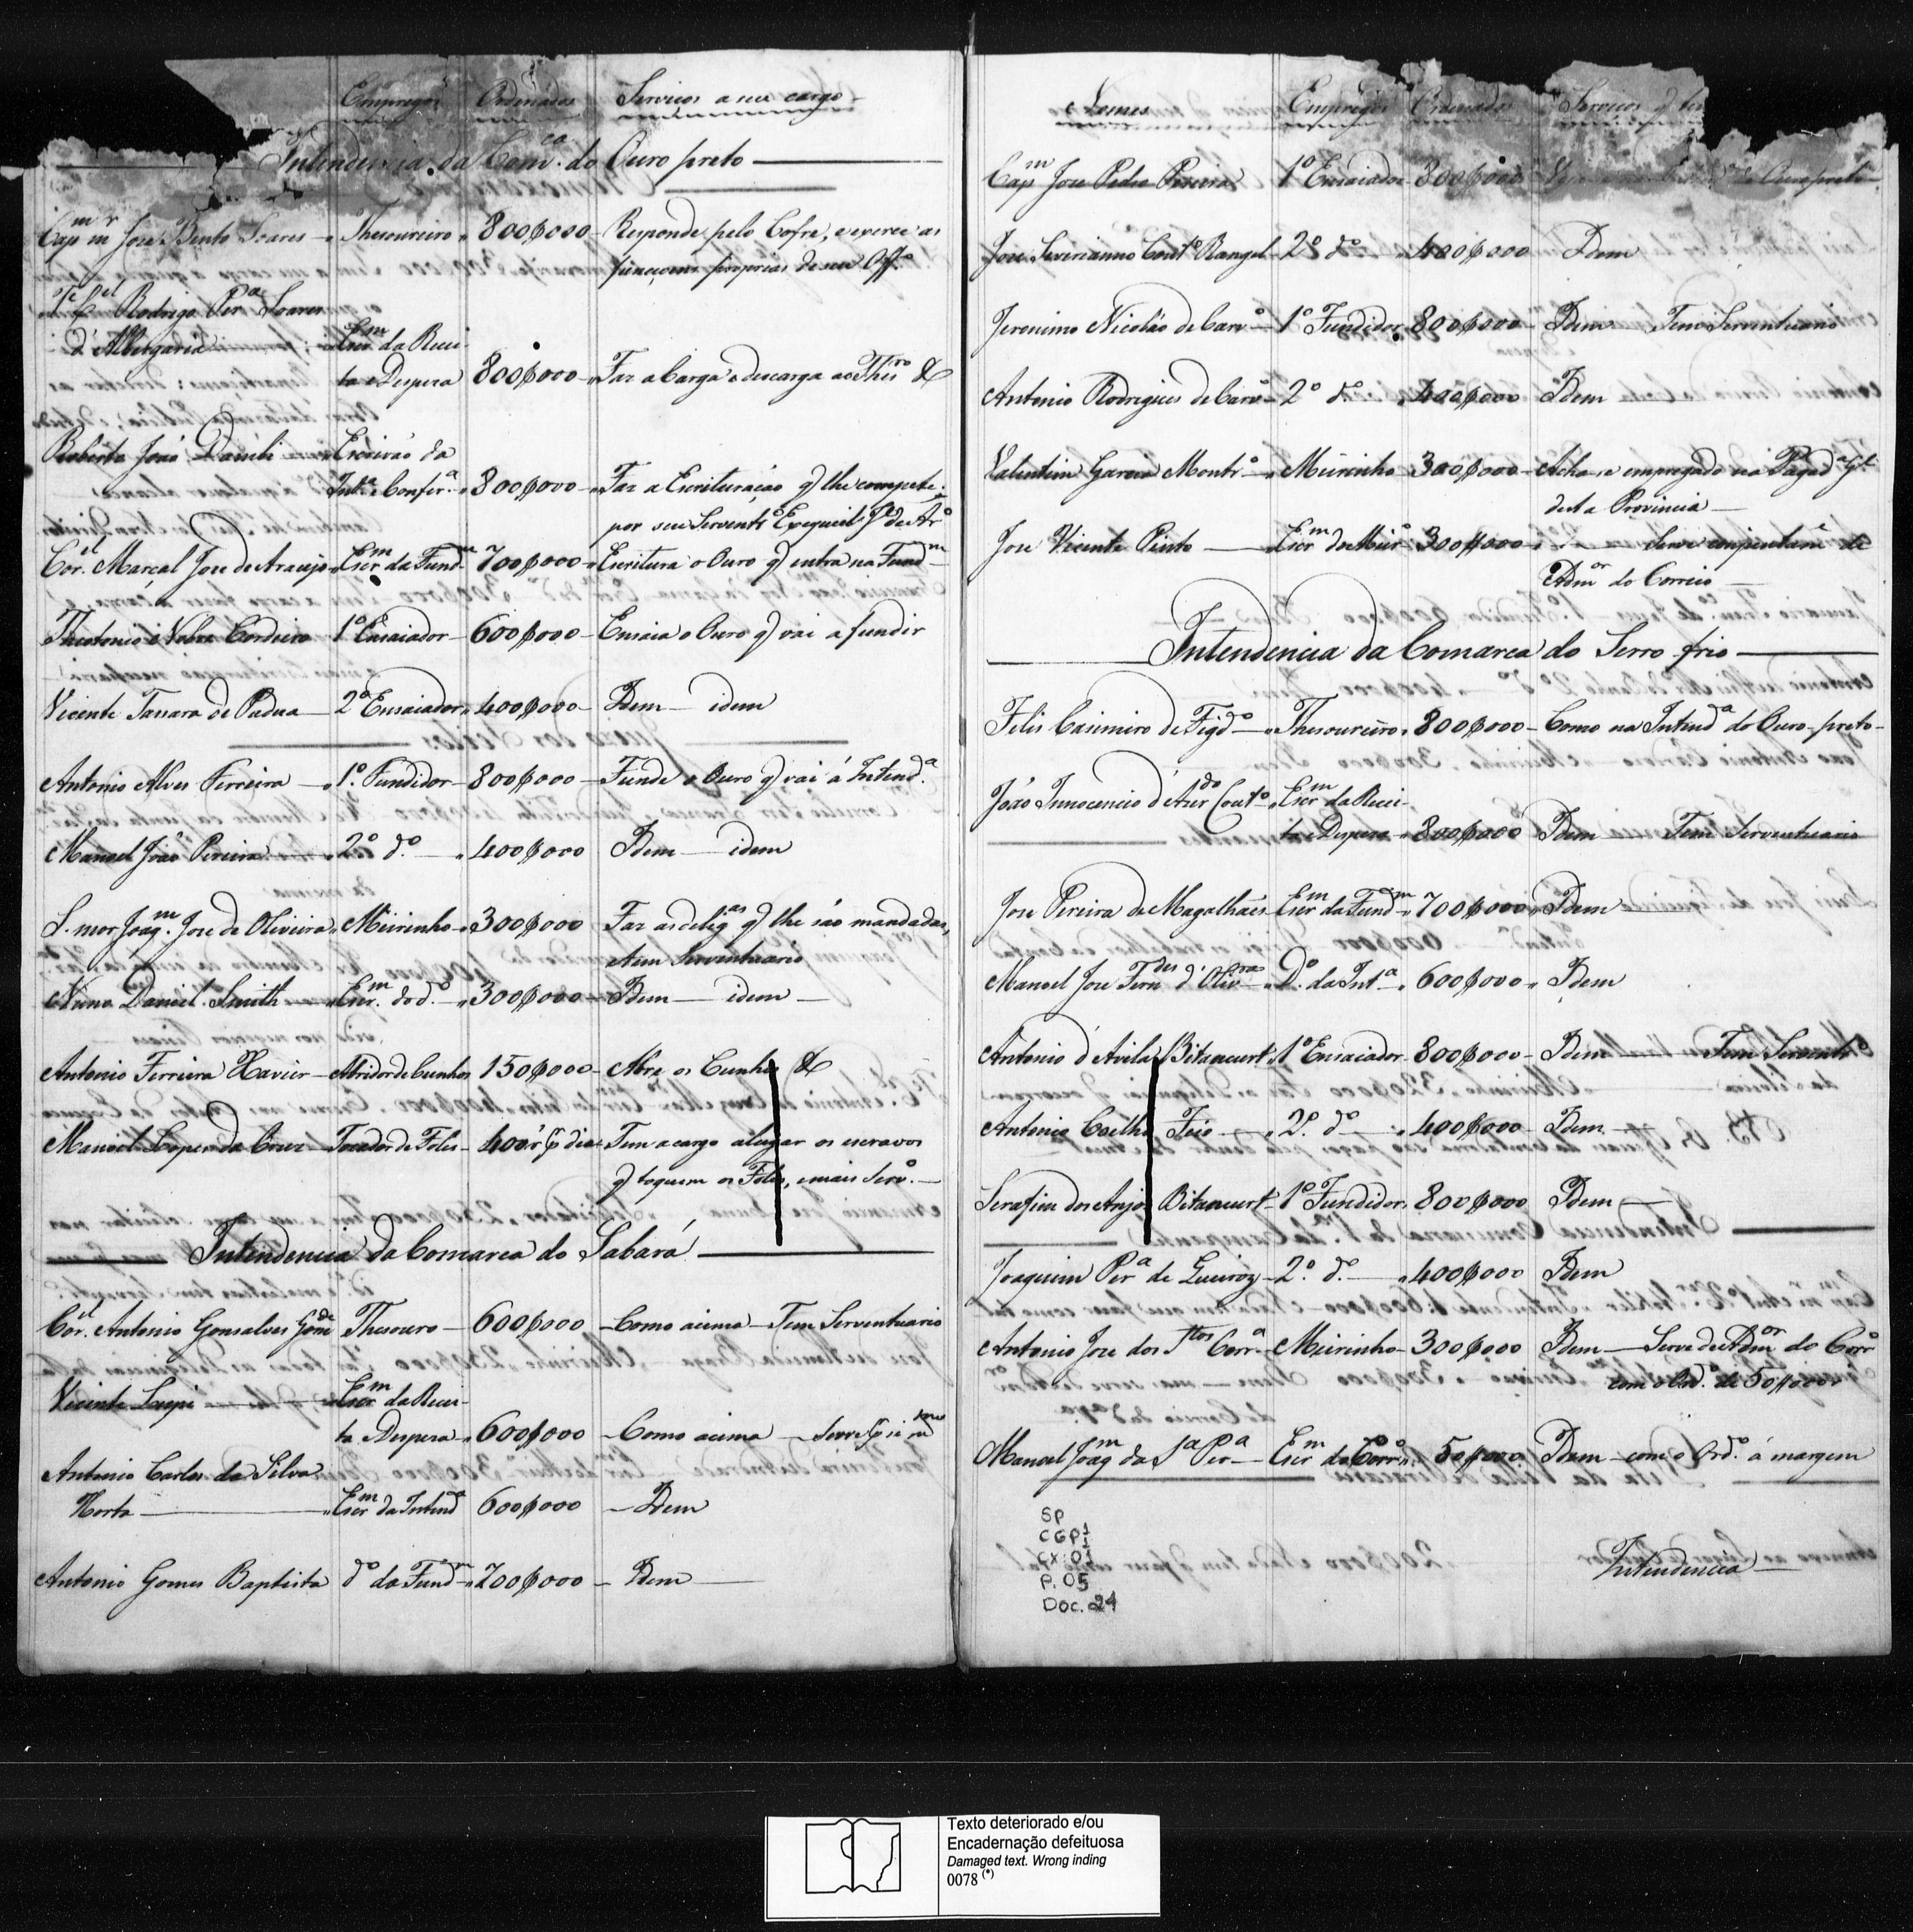 Empregos Ordenados Serviços a seu cargo
Intendencia da Com.ca do Ouro preto
Cap.m m.r Jose Bento Soares Thesoureiro 800$000 Responde pelo Cofre, e exerce as
funçoens proprias de seu Off.o
T.e C.el Rodrigo Per.a Soares
d'Albergaria Escr.m da Recei-
ta e Despeza 800$000 Faz a Carga e descarga ao Thes.ro &
Roberto João Escrivão da
Int.a e Confer.a 800$000 Faz a Escrituração q̃ lhe compete
por seu Servent.o Exequiel J.e de Ar.o
Cor.el Marçal Jose de Araujo Escr.m da Fund.m 700$000 Escritura o Ouro q̃ entra na Fund.m
Theotonio Cordeiro 1.o Ensaiador 600$000 Ensaia o Ouro q̃ vai a fundir
Vicente de Padua 2.o Ensaiador 400$000 Idem idem
Antonio Alves Ferreira 1.o Fundidor 800$000 Funde o Ouro q̃ vai á Intend.a
Manoel João Pereira 2.o d.o 400$000 Idem idem
S. mor Joaq.m Jose de Oliveira Meirinho 300$000 Faz as delig.as q̃ lhe são mandadas,
e tem Serventuario
Nuno Daniel Smith Escr.m do d.o 300$000 Idem idem
Antonio Ferreira Xavier Abridor de Cunhos 150$000 Abre os Cunhos &
Manoel Lopes da Cruz Tocador de Foles 400 r.s p dia Tem a cargo alugar os escravos
q̃ toquem os Foles, e mais Serv.o
Intendencia da Comarca do Sabará
Cor.el Antonio Gonsalves Gom.de Thesouro 600$000 Como acima Tem Serventuario
Vicente Escr.m da Recei-
ta e Despeza 600$000 Como acima Serve p si m.mo
Antonio Carlos da Silva
Horta Escr.m da Intend.a 600$000 Idem
Antonio Gomes Baptista d.o da Fund.m 200$000 Idem
Nomes Empregos Ordenados Serviços q̃
Cap.m Jose Pedro Pereira 1.o Ensaiador 800$000 Ouro preto
Jose Severianno Cout.o Rangel 2.o d.o 400$000 Idem
Jeronimo Nicoláo de Carv.o 1.o Fundidor 800$000 Idem Tem Serventuario
Antonio Rodrigues de Carv.o 2.o d.o 400$000 Idem
Valentim Garcia Montr.o Meirinho 300$000 Acha-se empregado na Pagad.a G.l
desta Provincia
Jose Vicente Pinto Escr.m do Meir.o 300$000 Serve conjuntam.e de
Adm.or do Correio
Intendencia da Comarca do Serro frio
Felis Casimiro de Figd.o Thesoureiro 800$000 Como na Intend.a do Ouro-preto
João Innocencio d'Azer.do Cout.o Escr.m da Recei-
ta e Despeza 800$000 Idem Tem Serventuario
Jose Pereira de Magalhães Escr.m da Fund.m 700$000 Idem
Manoel Jose Fern.des d'Oliv.ra D.o da Int.a 600$000 Idem
Antonio d'Avila Bitancurt 1.o Ensaiador 800$000 Idem Tem Servent.o
Antonio Coelho Feio 2.o d.o 400$000 Idem
Serafim dos Anjos Bitancurt 1.o Fundidor 800$000 Idem
Joaquim Per.a de Queiroz 2.o d.o 400$000 Idem
Antonio Jose dos S.tos Corr.a Meirinho 300$000 Idem Serve de Adm.or do Corr.o
com o Ord.o de 50$000
Manoel Joaq.m da S.a Per.a Escr.m do Corr.o 50$000 Idem com o Ord.o á margem
Intendencia
SP
CGP1
CX:01
P. 05
Doc. 24
Texto deteriorado e/ou
Encadernação defeituosa
Damaged text. Wrong inding
0078 (*)